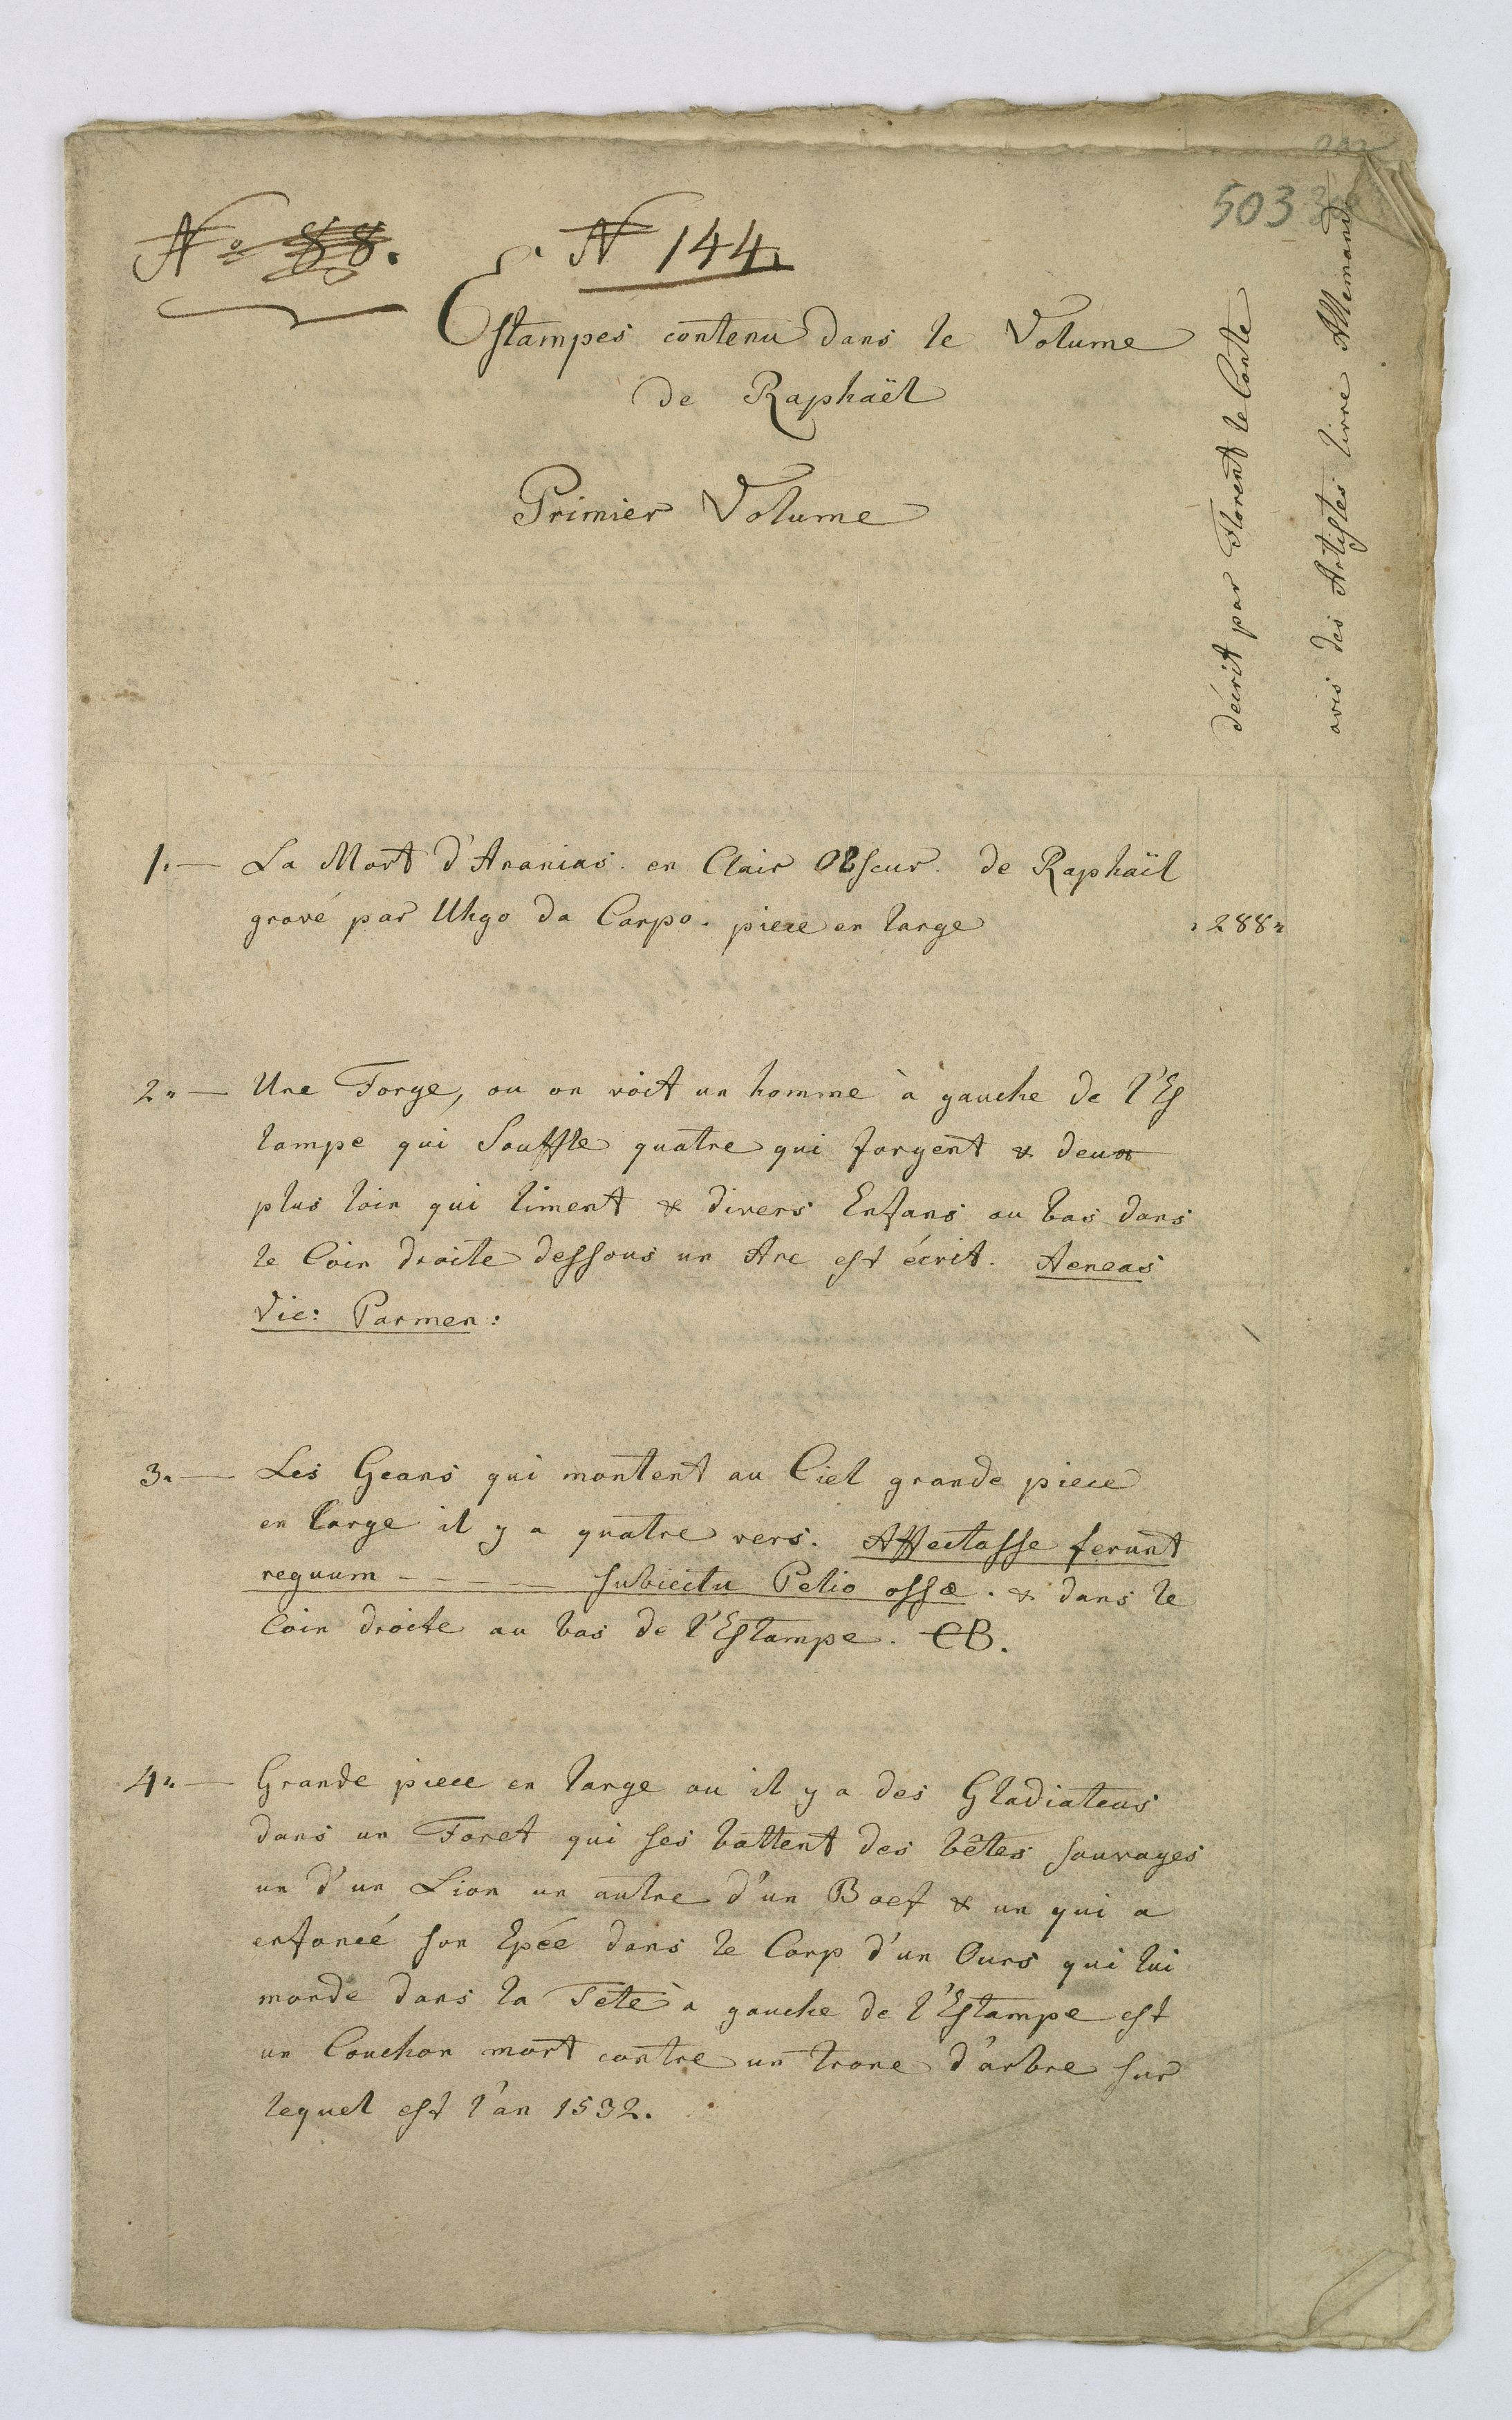 N° 88.
N 144.
503
Estampes contenu dans le Volume
de Raphaël
Primier Volume
décrit par Florent le Conte
avis des Artistes livre Allemand
1. — La Mort d'Ananias. en Clair Obscur. de Raphaïl
gravé par Uhgo da Carpo. piece en large
288
2. — Une Forge, ou on voit un homme à gauche de l'Es
tampe qui Souffle quatre qui forgent & deux
plus loin qui liment & divers Enfans au bas dans
le Coin droite dessous un Arc est écrit. Aeneas
Vic: Parmen:
3. — Les Geans qui montent au Ciel grande piece
en large il y a quatre vers. Affectasse ferunt
regnum - - - - subiectu Pelio ossæ. & dans le
Coin droite au bas de l'Estampe. CB.
4. — Grande piece en large ou il y a des Gladiateus
dans un Foret qui ses battent des bêtes sauvages
un d'un Lion un autre d'un Boef & un qui a
enfoncé son Epée dans le Corp d'un Ours qui lui
morde dans la Tete à gauche de l'Estampe est
un Couchon mort contre un tronc d'arbre sur
lequel est l'an 1532.